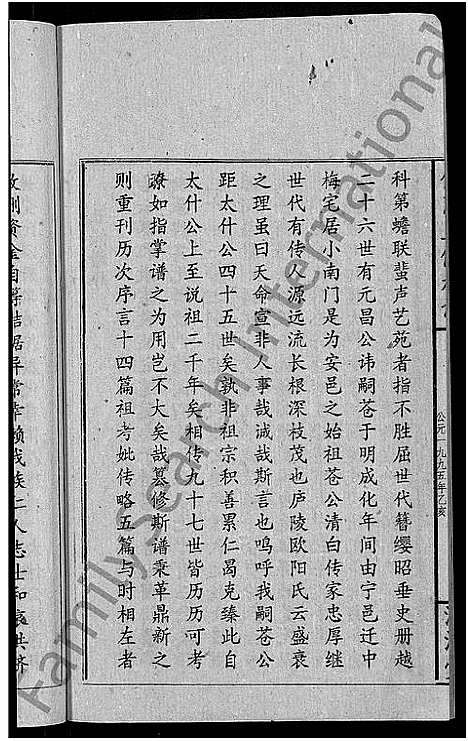 科第蟾联蜚声艺苑者指不胜屈世代簪缨昭垂史册越
二十六世有元昌公讳嗣苍于明成化年间由宁邑迁中
梅宅居小南门是为安邑之始祖苍公清白传家忠厚继
世代有传人源远流长根深枝茂也庐陵欧阳氏云盛衰
之理虽曰天命宣非人事哉诚哉斯言也鸣呼我嗣苍公
距太什公四十五世矣孰非祖宗积善累仁曷克臻此自
太什公上至说祖二千年矣相传九十七世皆历历可考
瞭如指掌谱之为用岂不大矣哉篡修斯谱乘革鼎新之
则重刊历次序言十四篇祖考妣传略五篇与时相左者
公元一九九五年乙亥
FamilySearch International